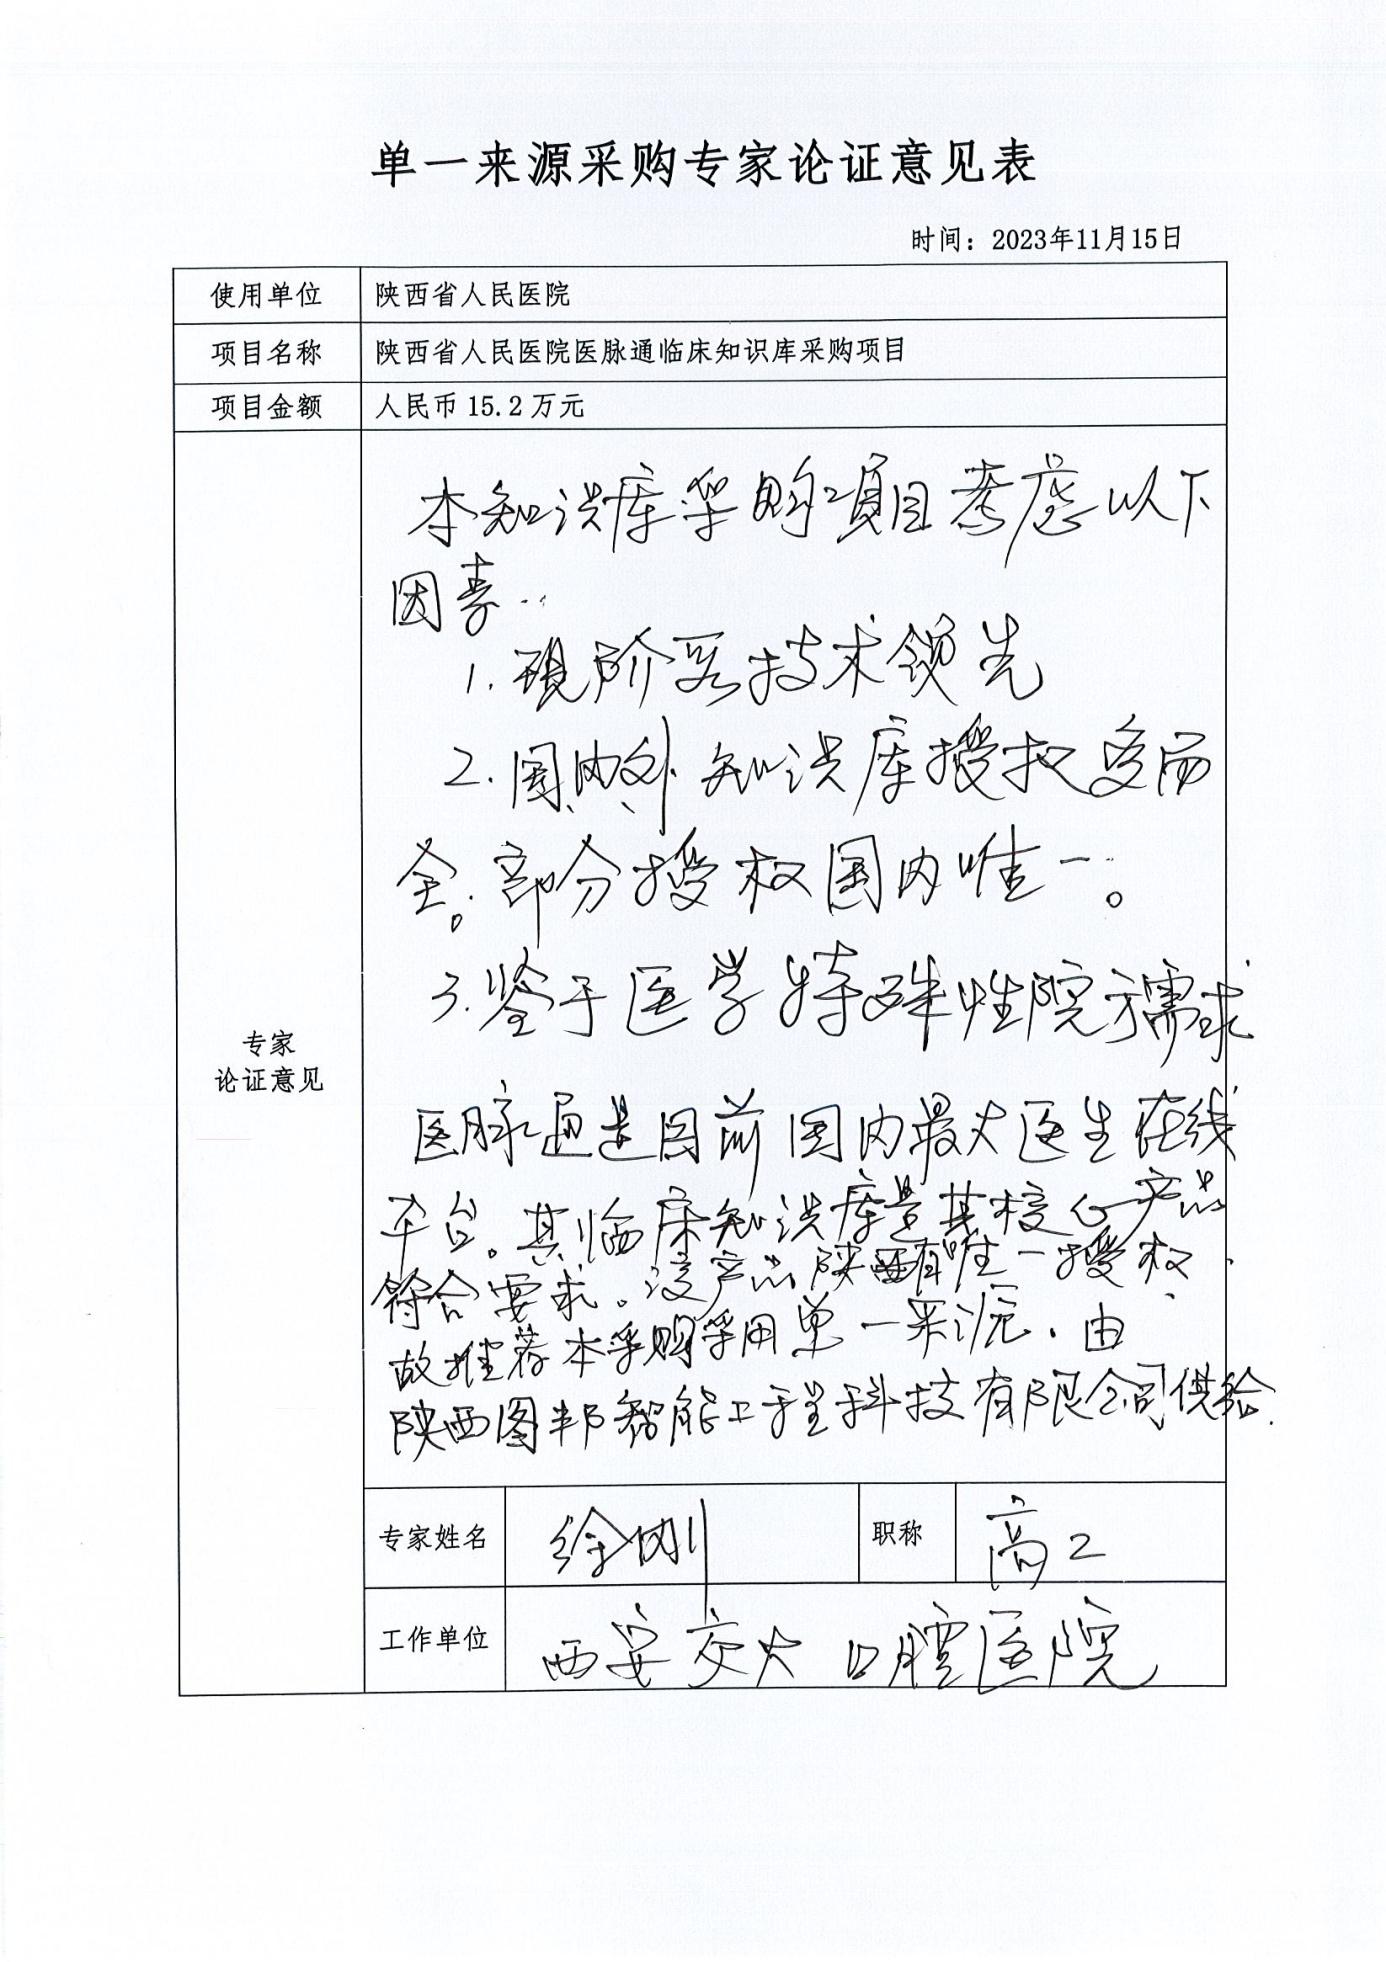 单一来源采购专家论证意见表
时间：2023年11月15日
使用单位 陕西省人民医院
项目名称 陕西省人民医院医脉通临床知识库采购项目
项目金额 人民币 15.2 万元
专家
论证意见
本知识库采购项目考虑以下
因素..
1. 现阶段技术领先
2. 国内外知识库授权多而
全。部分授权国内唯一。
3. 鉴于医学特殊性院方需求
医脉通是目前国内最大医生在线
平台。其临床知识库是其核心产品
符合要求。该产品陕西有唯一授权.
故推荐本采购采用单一来源. 由
陕西图邦智能工程科技有限公司供给.
专家姓名 徐刚 职称 高工
工作单位 西安交大口腔医院